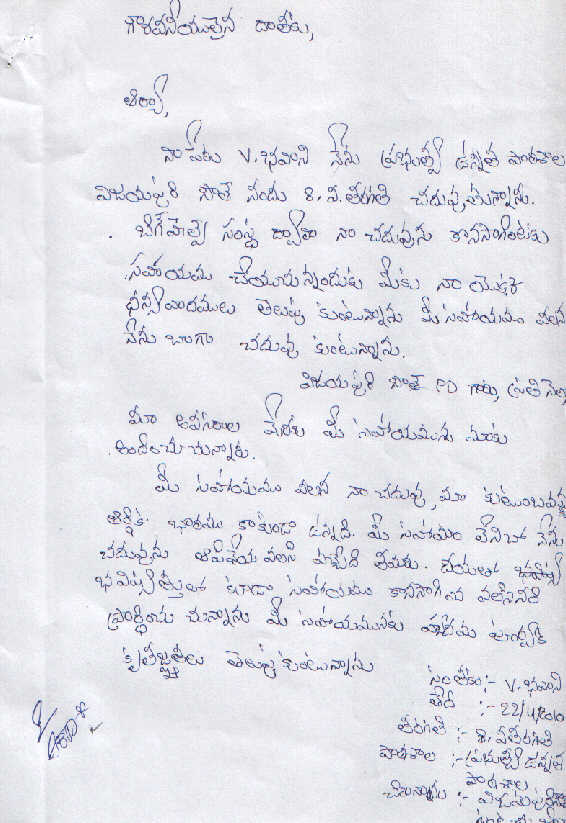 గౌరవనీయులైన దాతకు,
ఆర్యా,
నా పేరు V. భవాని నేను ప్రభుత్వ ఉన్నత పాఠశాల
విజయపురి సౌత్ నందు 8. వ. తరగతి చదువుతున్నాను.
సంస్థ ద్వారా నా చదువును కొనసాగించుటకు
సహాయము చేయుచున్నందుకు మీకు నా యొక్క
ధన్యవాదములు తెలుపు కుంటున్నాను మీ సహాయము వలన
నేను బాగా చదువు కుంటున్నాను.
విజయపురి సౌత్ PD గారు, ప్రతి నెల
మా అవసరాల మేరకు మీ సహాయమును మాకు
అందించు చున్నారు.
మీ సహాయము వలన నా చదువు, మా కుటుంబమునకు
ఆర్థిక భారము కాకుండా ఉన్నది. మీ సహాయం లేనిచో నేను
చదువును ఆపివేయ వలసి వచ్చేది దయతో
భవిష్యత్తులో కూడా సహాయము కొనసాగించ వలసినదిగా
ప్రార్థించు చున్నాను మీ సహాయమునకు హృదయ పూర్వక
కృతజ్ఞతలు తెలుపు కుంటున్నాను
సంతకం :- V. భవాని
తేది :- 22/4/2010
తరగతి :- 8. వ తరగతి
పాఠశాల :- ప్రభుత్వ ఉన్నత
పాఠశాల
చిరునామా :- విజయపురి సౌత్